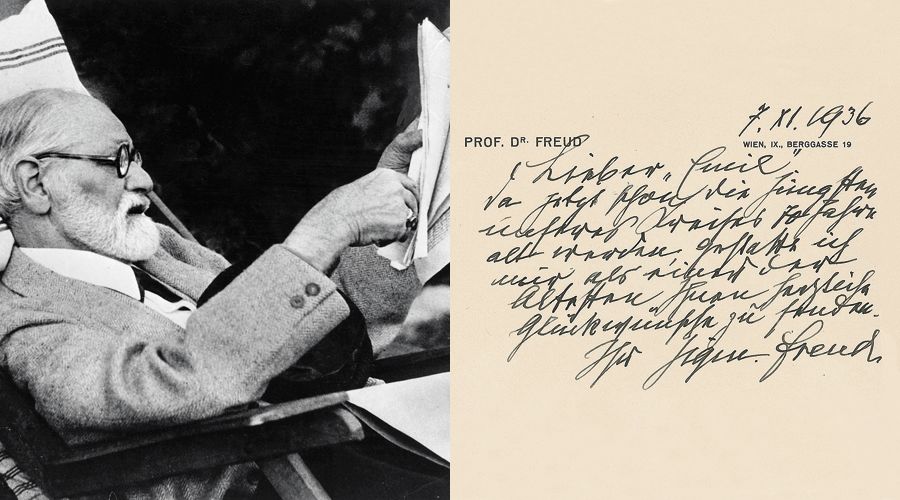 7. XI. 1936
PROF. DR. FREUD
WIEN, IX., BERGGASSE 19
Lieber „Emil“
Da jetzt schon die jüngsten
unsres Kreises 70 Jahre
alt werden, gestatte ich
mir als einer der
Ältesten Ihnen herzliche
Glückwünsche zu senden.
Ihr Sigm. Freud.